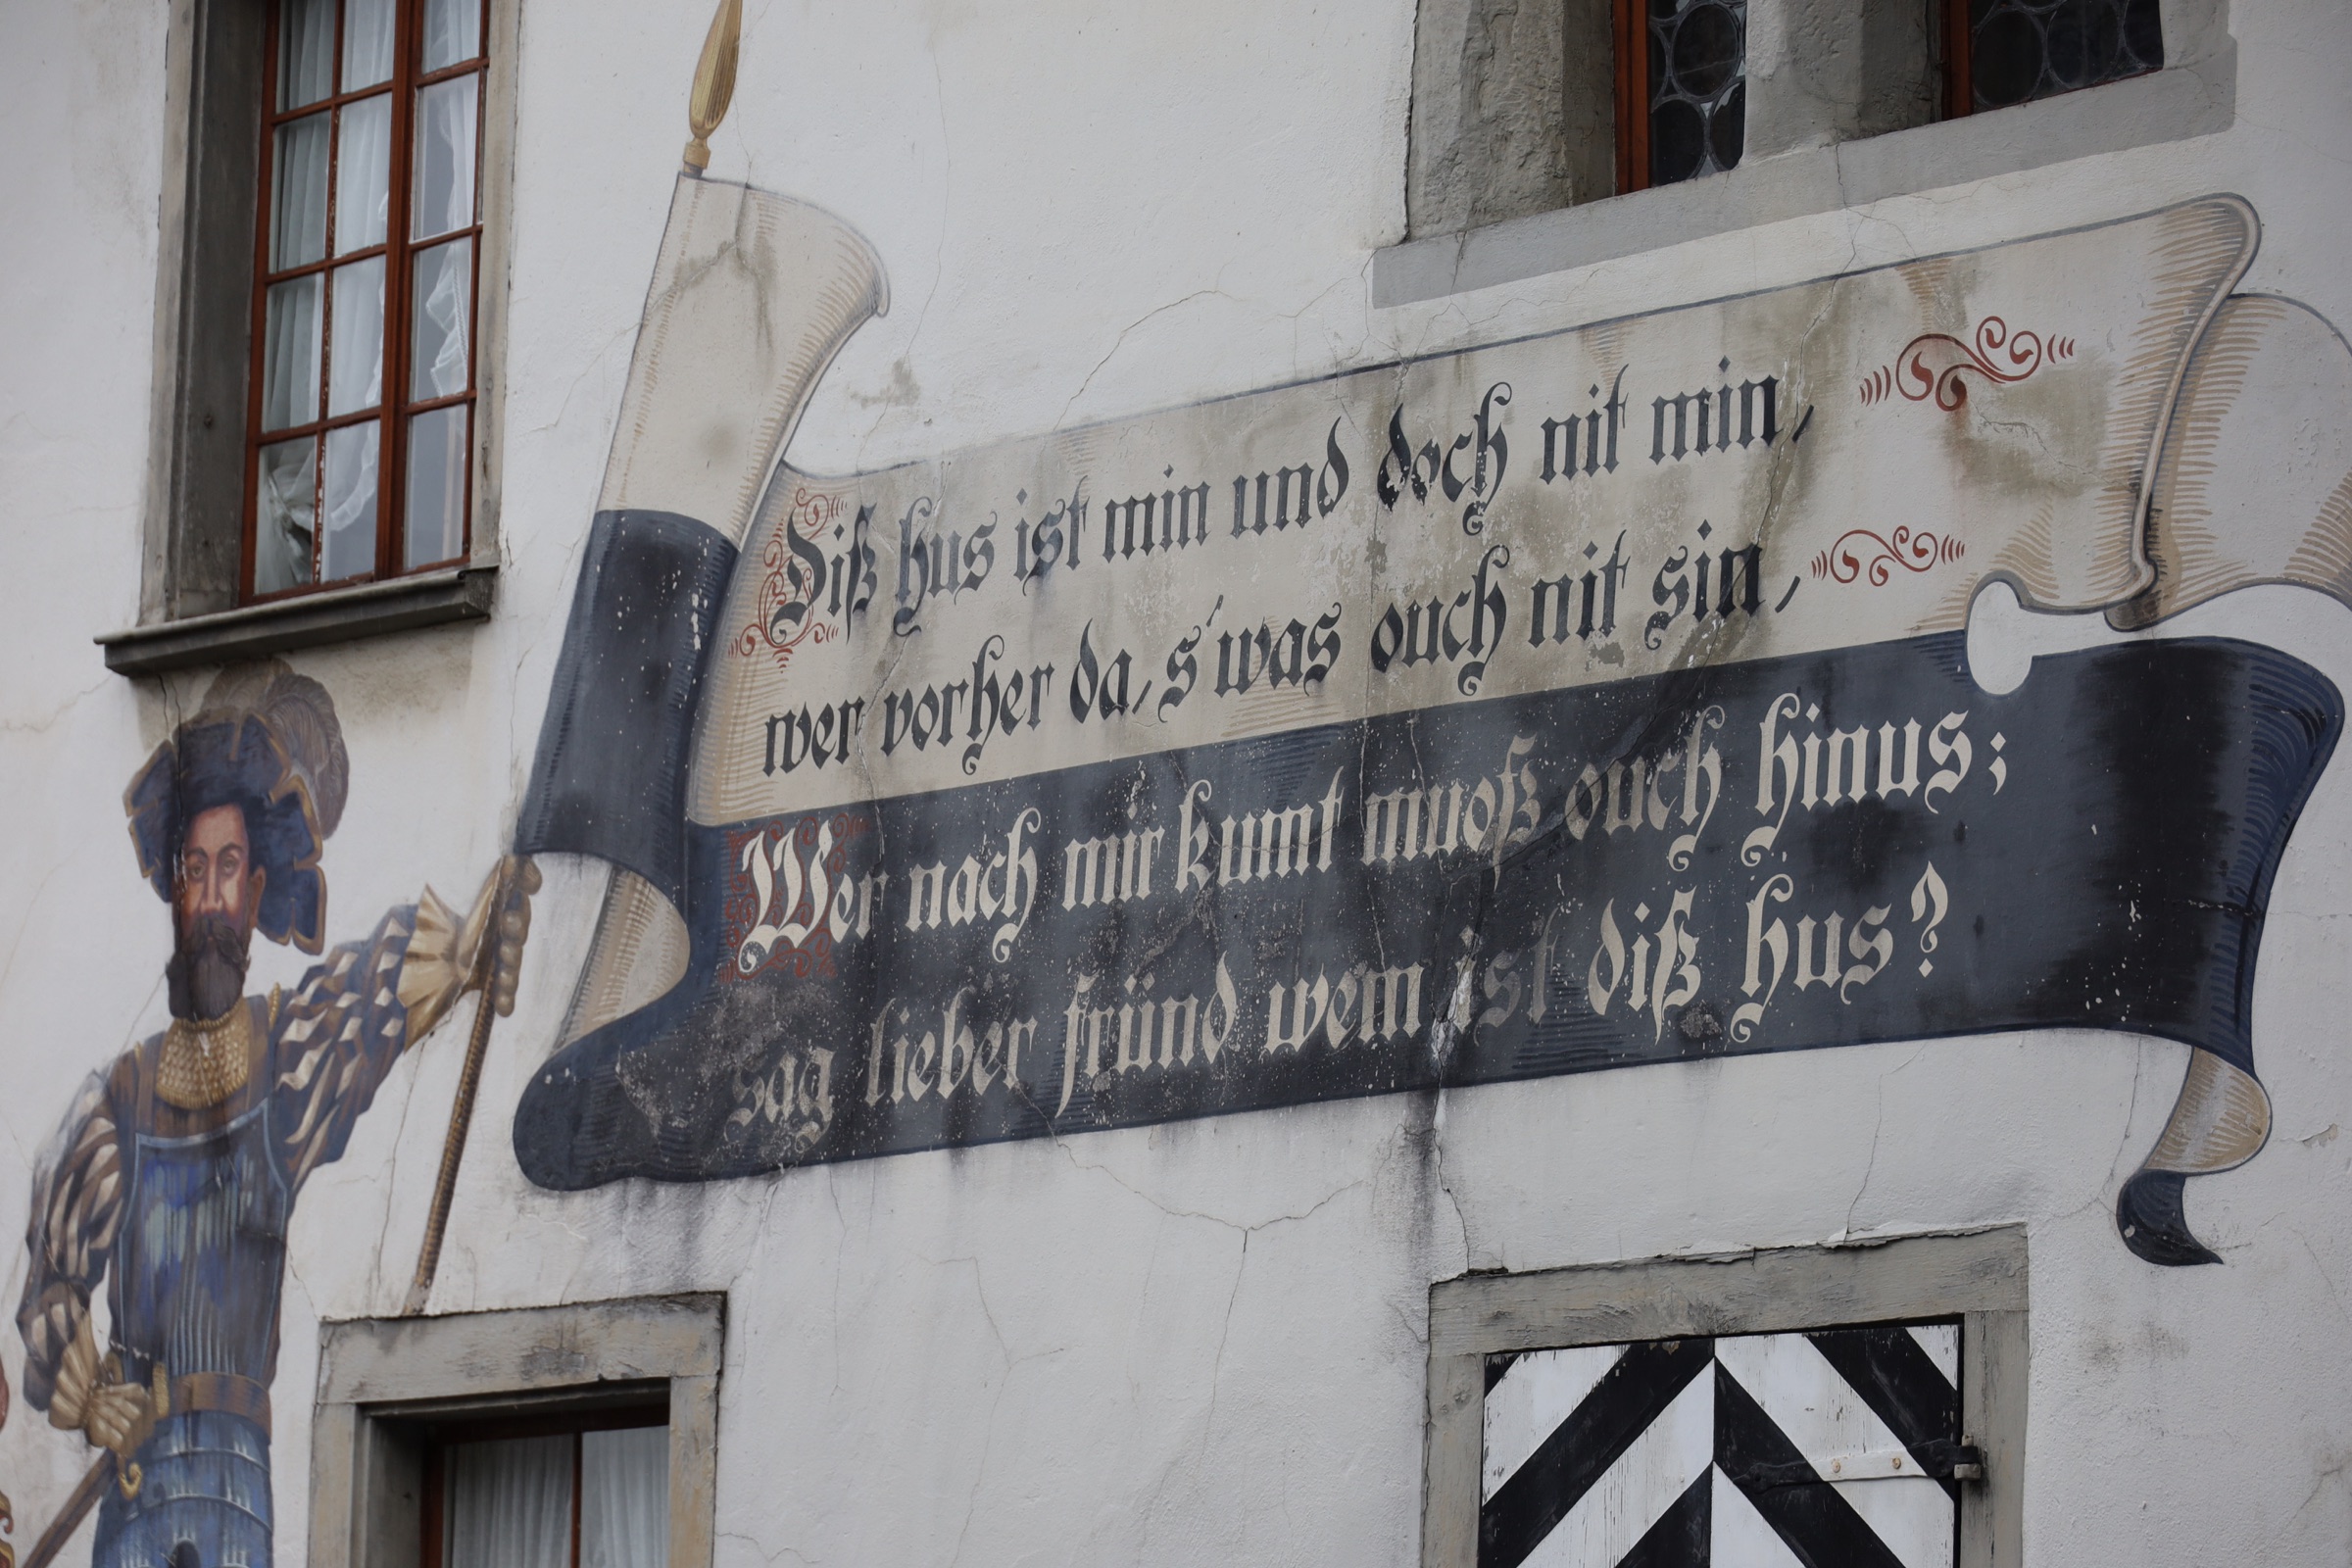 Diß hus ist min und doch nit min,
wer vorher da, s'was ouch nit sin,
Wer nach mir kumt muoß ouch hinus;
sag lieber fründ wem ist diß hus?